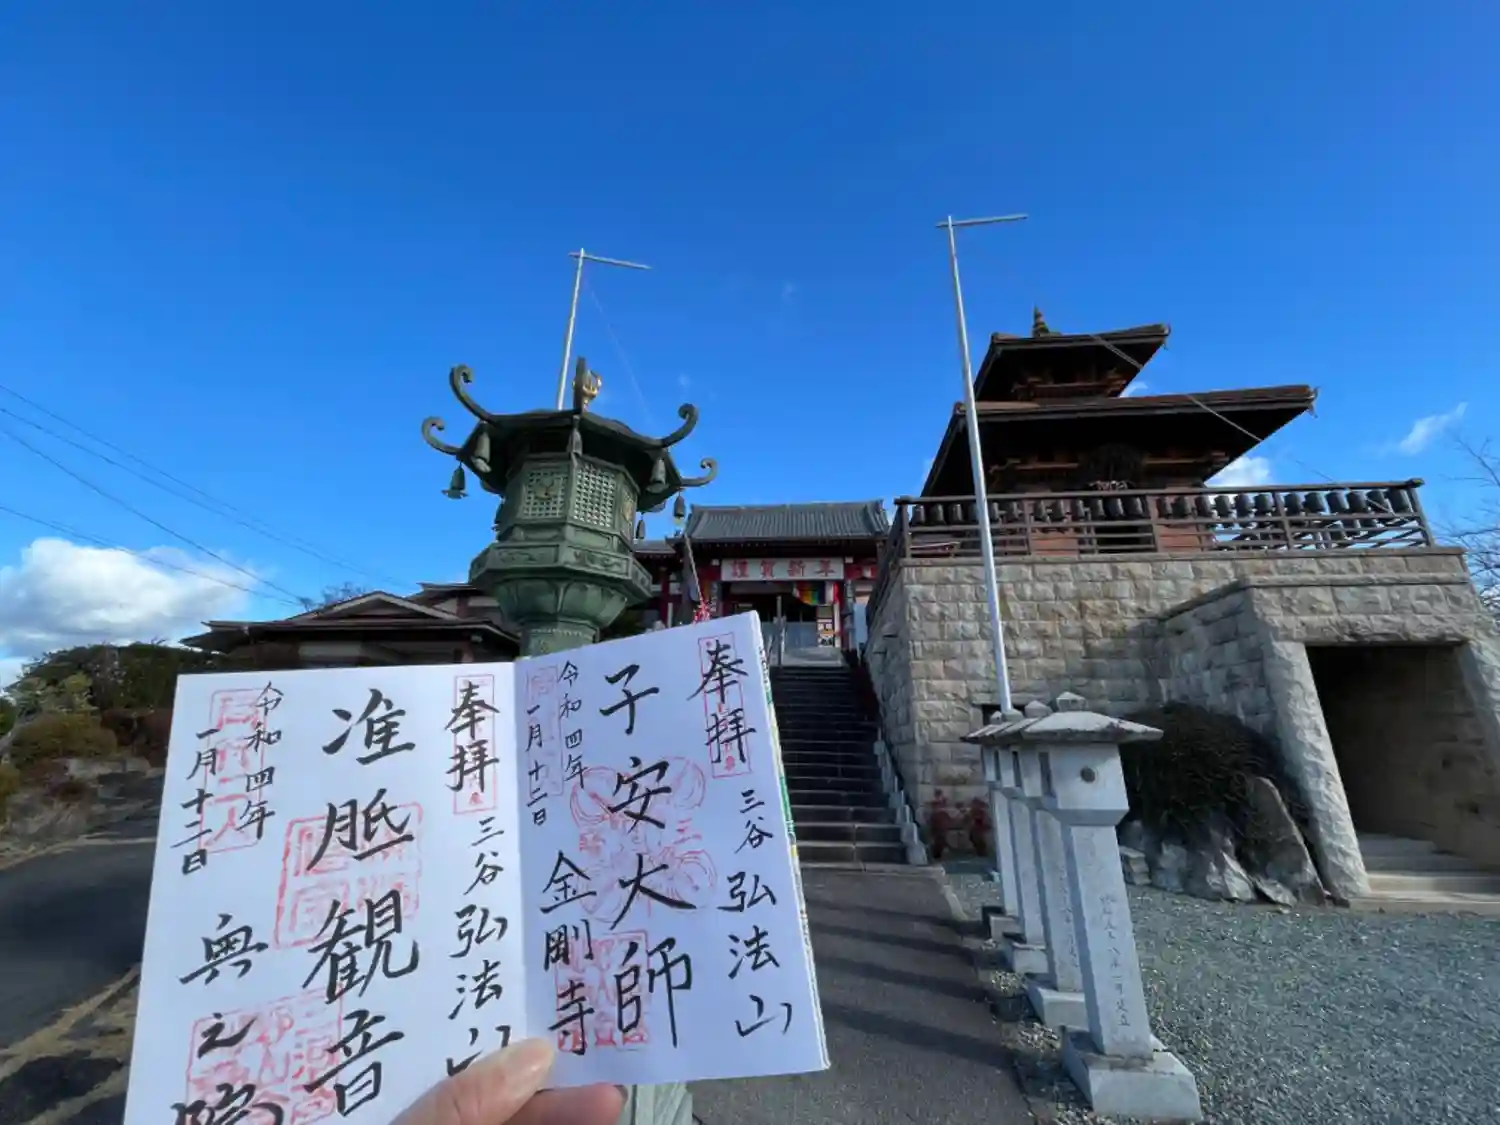 謹賀新年
奉拝
三谷弘法山
子安大師
令和四年
一月十二日
金剛寺
奉拝
三谷弘法山
准胝観音
令和四年
一月十二日
奥之院